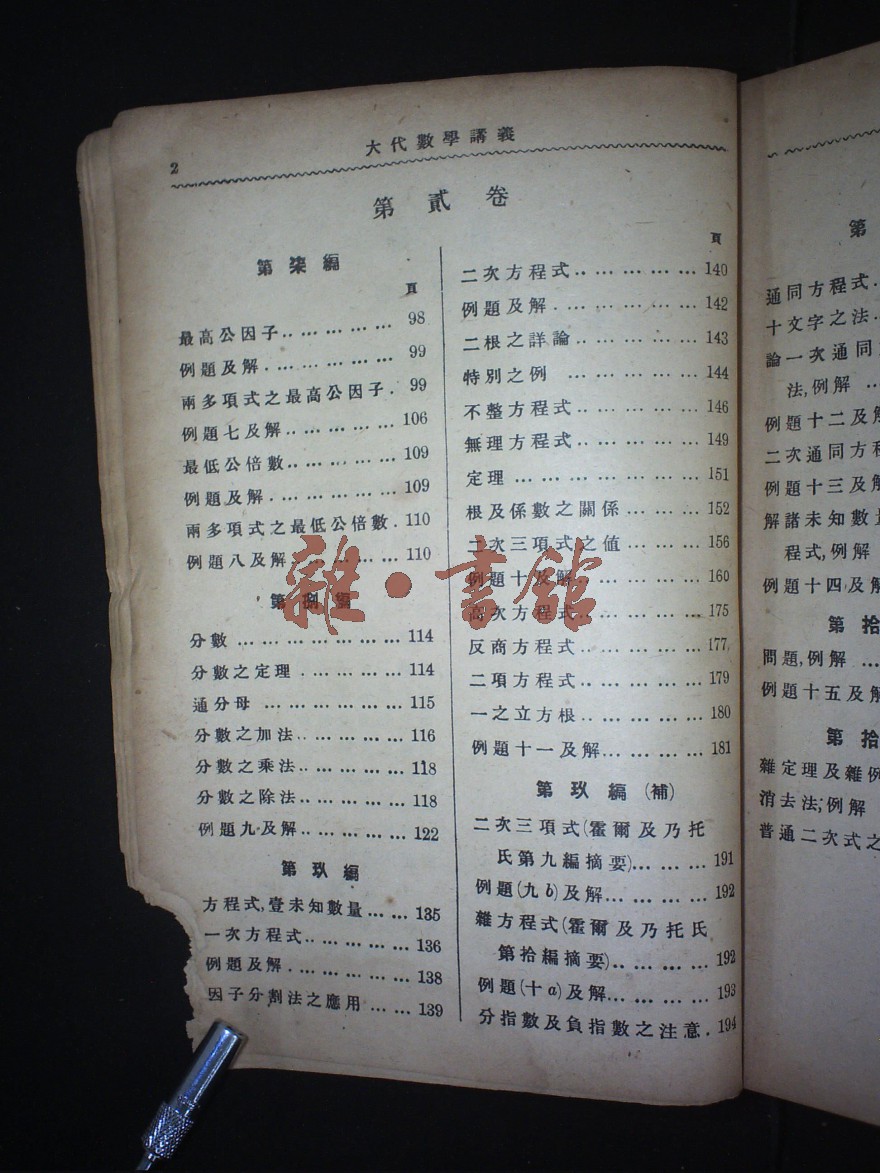 2
大代數學講義
第貳卷
第柒編
頁
最高公因子.. ... ... ... ... 98
例題及解. ... ... ... ... ... 99
兩多項式之最高公因子. 99
例題七及解.. ... ... ... ... 106
最低公倍數.. ... ... ... ... 109
例題及解. ... ... ... ... ... 109
兩多項式之最低公倍數. 110
例題八及解 ... ... ... ... 110
第捌編
分數 ... ... ... ... ... ... ... 114
分數之定理 . ... ... ... ... 114
通分母 ... ... ... ... ... ... 115
分數之加法.. ... ... ... ... 116
分數之乘法.. ... ... ... ... 118
分數之除法.. ... ... ... ... 118
例題九及解.. ... ... ... ... 122
第玖編
方程式,壹未知數量 ... ... 135
一次方程式.. ... ... ... ... 136
例題及解. ... ... ... ... ... 138
因子分割法之應用 ... ... 139
頁
二次方程式.. ... ... ... ... 140
例題及解 . ... ... ... ... ... 142
二根之詳論.. ... ... ... ... 143
特別之例 ... ... ... ... ... 144
不整方程式.. ... ... ... ... 146
無理方程式.. ... ... ... ... 149
定理 ... ... ... ... ... ... ... 151
根及係數之關係 ... ... ... 152
二次三項式之値 ... ... ... 156
例題十及解... ... ... ... ... 160
高次方程式.. ... ... ... ... 175
反商方程式.. ... ... ... ... 177
二項方程式.. ... ... ... ... 179
一之立方根.. ... ... ... ... 180
例題十一及解... ... ... ... 181
第玖編(補)
二次三項式(霍爾及乃托
氏第九編摘要)... ... ... 191
例題(九b)及解... ... ... ... 192
雜方程式(霍爾及乃托氏
第拾編摘要).. ... ... ... 192
例題(十a)及解... ... ... ... 193
分指數及負指數之注意. 194
雜·書館
第
通同方程式.
十文字之法.
論一次通同
法,例解 ...
例題十二及解
二次通同方程
例題十三及解
解諸未知數量
程式,例解
例題十四及解
第拾
問題,例解 ...
例題十五及解
第拾
雜定理及雜例
消去法,例解
普通二次式之